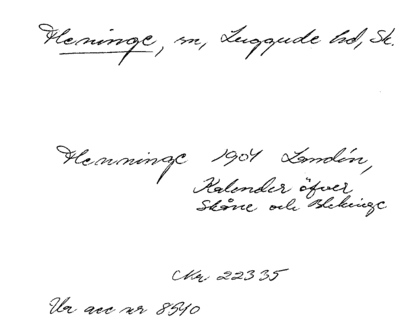 Heninge, sn, Luggude hd, Sk.
Henninge 1904 Landén,
Kalender öfver
Skåne och Blekinge
Nr 22335
Ur acc nr 8540